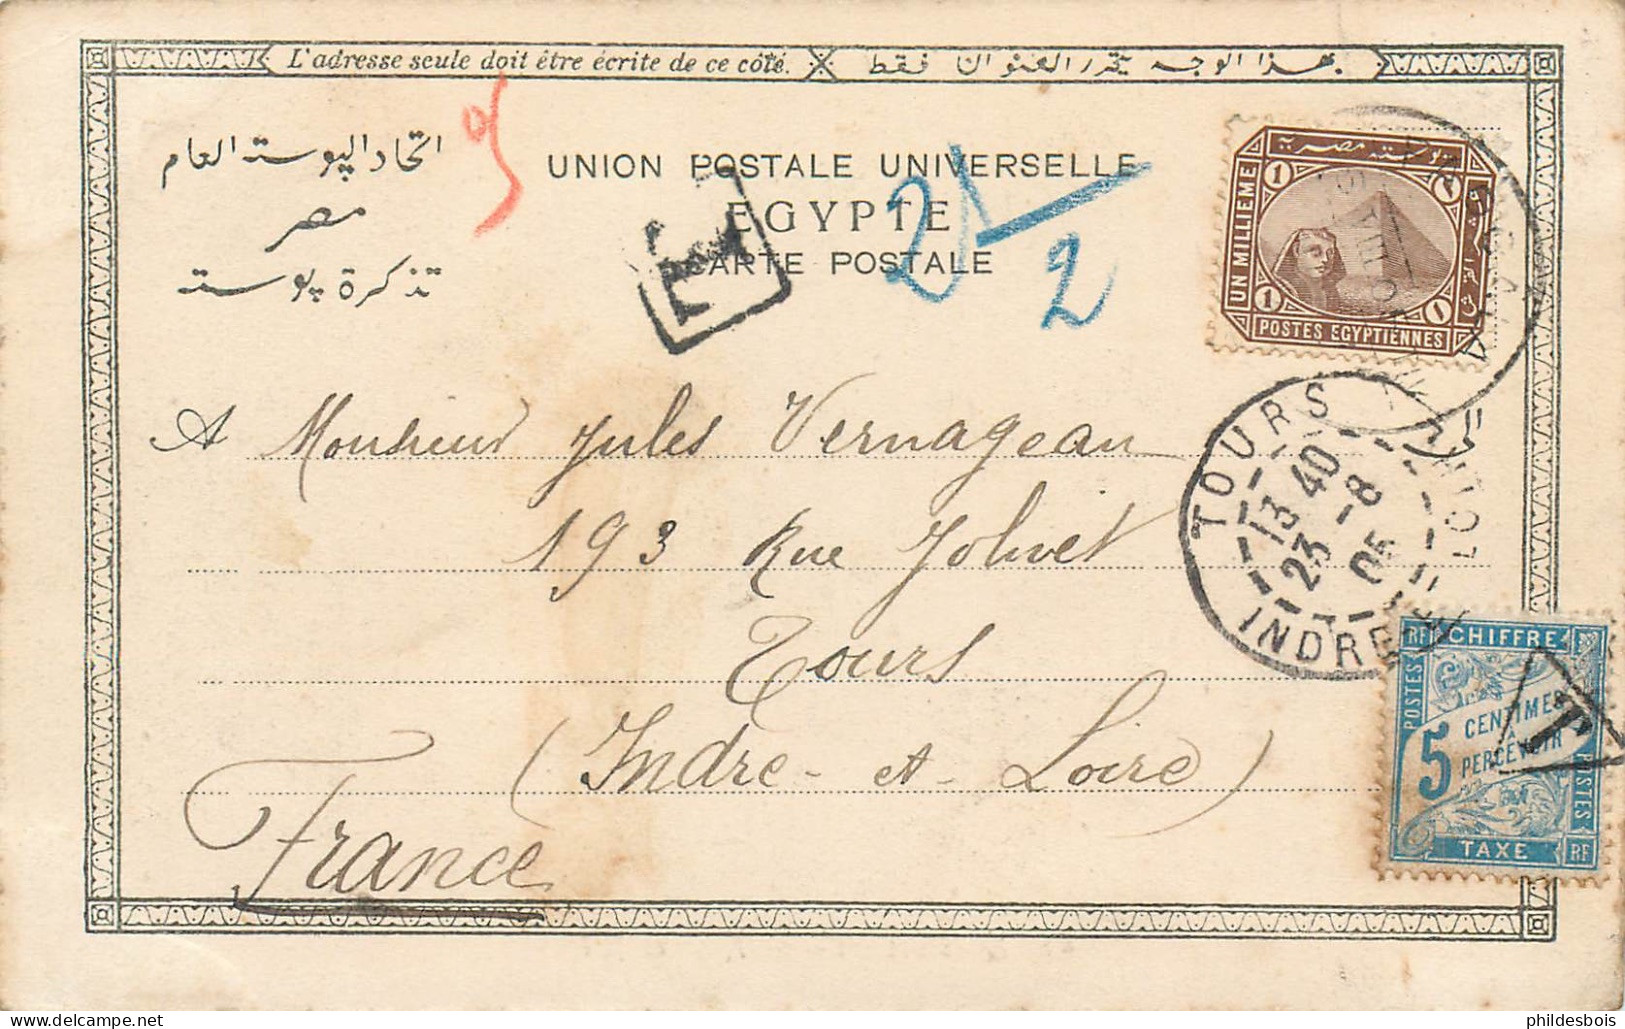 L'adresse seule doit être écrite de ce côté.
بهذا الوجه يحرر العنوان فقط
اتحاد البوسته العام
مصر
تذكرة بوسته
UNION POSTALE UNIVERSELLE
EGYPTE
CARTE POSTALE
T
2 1/2
بوسته مصرية
1 1
UN MILLIEME
1 1
POSTES EGYPTIENNES
A Monsieur Jules Vernageau
193 Rue Jolivet
Tours
(Indre-et-Loire)
France
TOURS
13 40
23 -8
05
INDRE-ET-LOIRE
RF CHIFFRE
POSTES
5
CENTIMES
À
PERCEVOIR
POSTES
TAXE RF
T
phildesbois